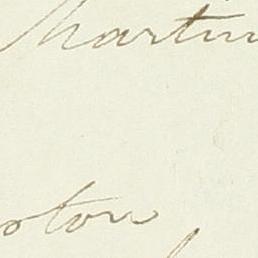 Martin
oton